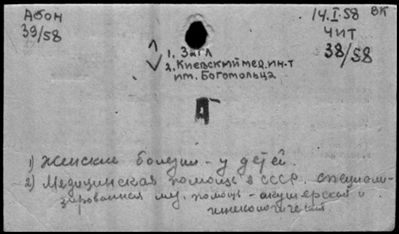 Абон
39/58
14.I.58 ВК
ЧИТ
38/58
1. Загл
2. Киевский мед. ин-т
им. Богомольца
А
1) Женские болезни - у детей.
2) Медицинская помощь в СССР, специали-
зированная мед. помощь - акушерская и
гинекологическая